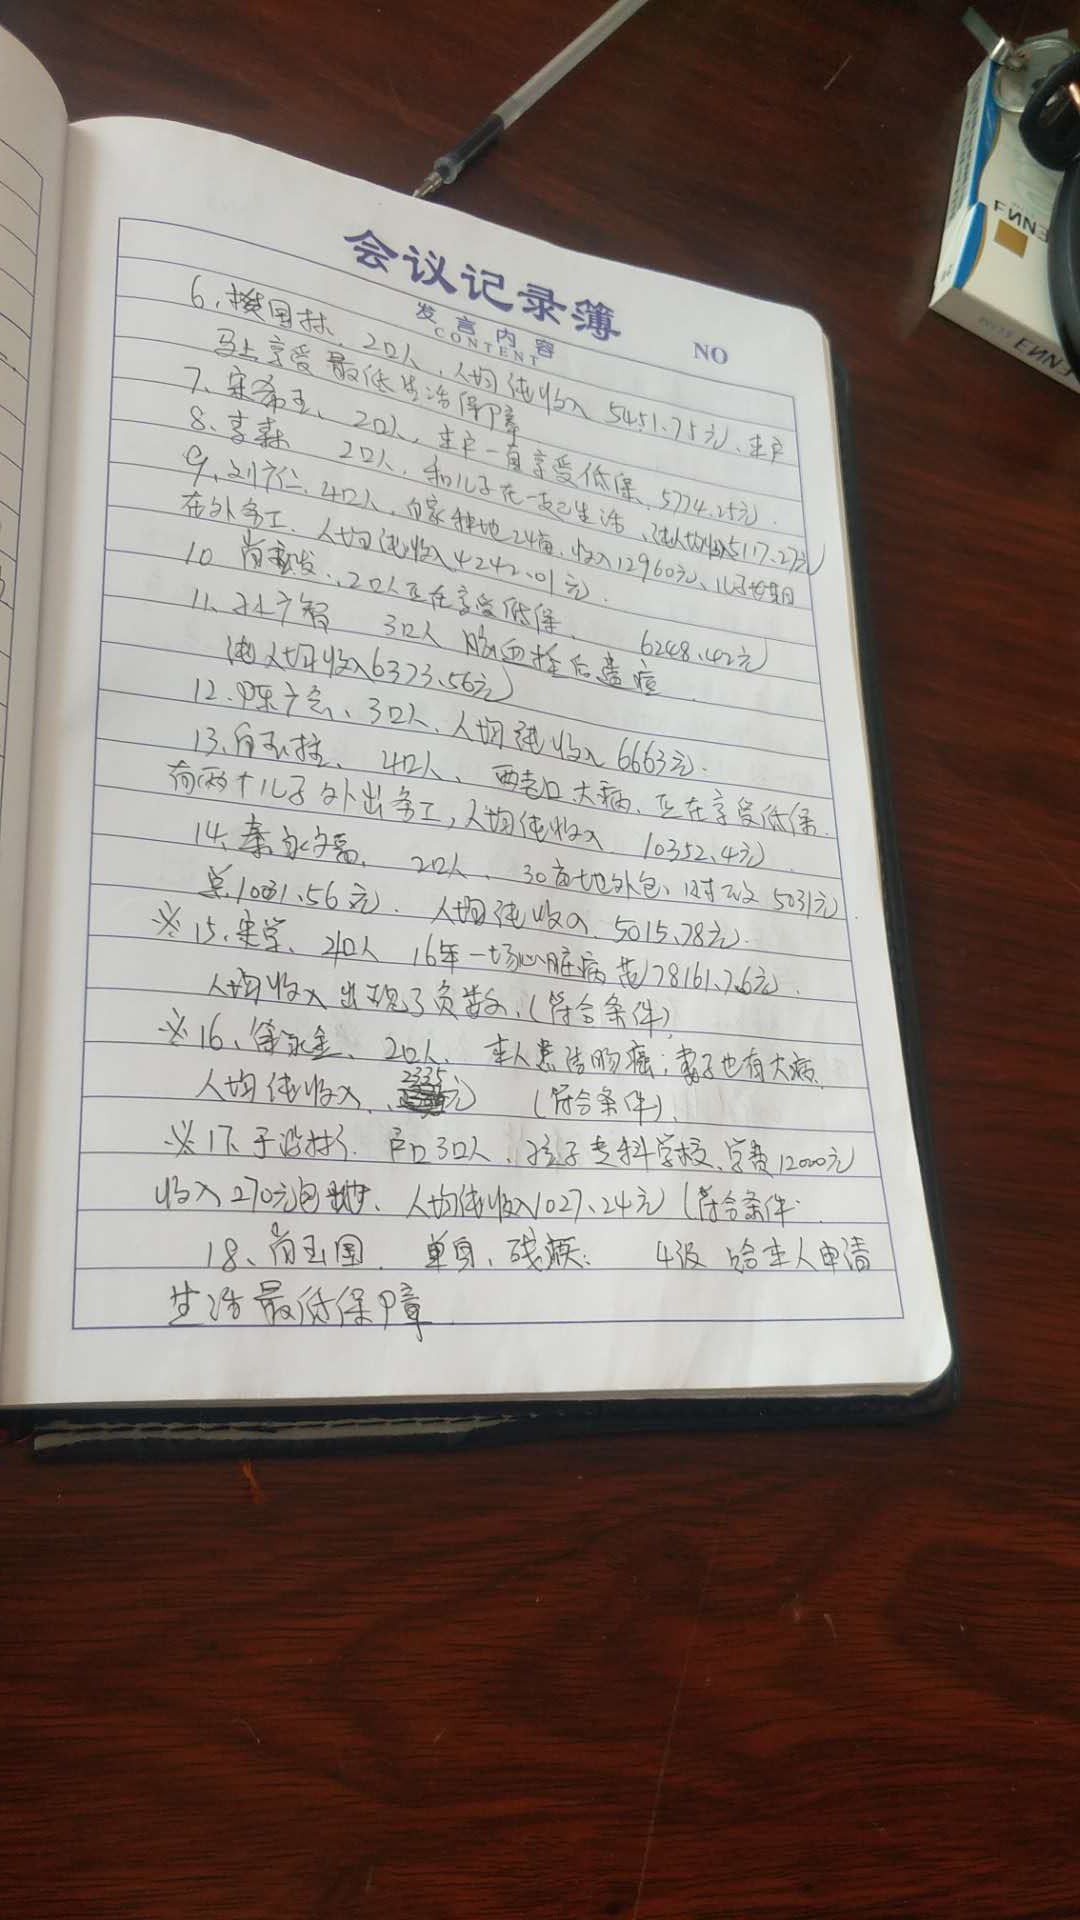 会议记录簿
发言内容 NO
CONTENT
6、樊国林、2口人、人均纯收入5451.75元、本户
马上享受最低生活保障
7、宋希玉、2口人、本户一直享受低保、5774.25元.
8、李森 2口人、和儿子在一起生活、纯人均收入5117.27元
9、刘广仁、4口人、自家种地24亩、收入12960元、儿子长期
在外务工、人均纯收入4242.01元.
10 尚发、2口人正在享受低保、 6248.42元
11、广智 3口人 脑血栓后遗症
纯人均收入6373.56元
12、陈广、3口人、人均纯收入6663元.
13、白玉柱、 4口人、 两老口大病、正在享受低保.
有两个儿子外出务工,人均纯收入 10352.4元
14、秦永富、 2口人、30亩地外包、财政5031元.
总10031.56元. 人均纯收入 5015.78元.
※15、宋学、2口人 16年一场心脏病花78161.76元.
人均收入出现了负数、(符合条件)
※16、徐永金、2口人、本人患结肠癌;妻子也有大病.
人均纯收入、2335元 (符合条件)、
※17、于设林 户口3口人、孩子专科学校、学费12000元
收入270元包地、人均纯收入1027.24元 (符合条件.
18、尚玉国. 单身、残疾: 4级 给本人申请
生活最低保障